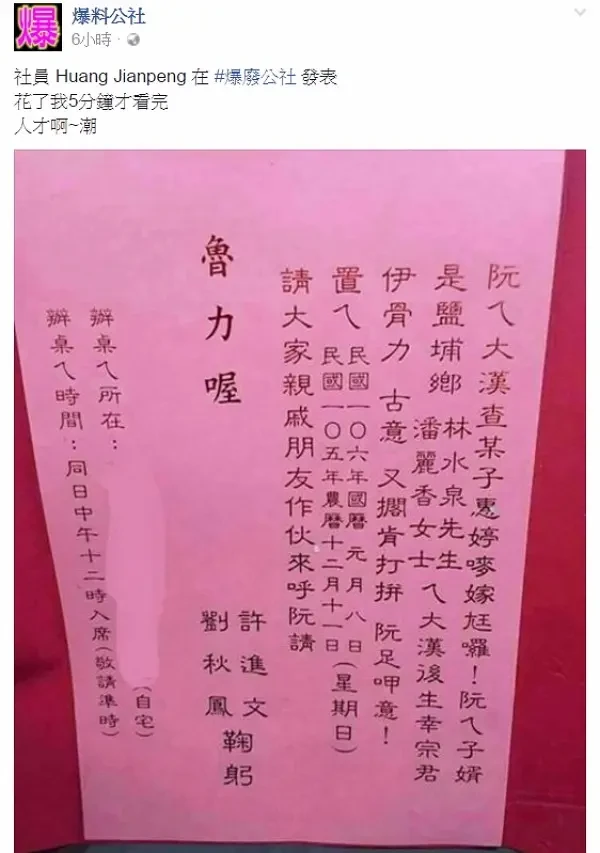 爆
爆料公社
6小時
社員 Huang Jianpeng 在 #爆廢公社 發表
花了我5分鐘才看完
人才啊~潮
阮ㄟ大漢查某子惠婷嘜嫁尪囉！阮ㄟ子婿
是鹽埔鄉 林水泉先生 潘麗香女士 ㄟ大漢後生幸宗君
伊骨力 古意 又擱肯打拼 阮足呷意！
置ㄟ 民國一○六年國曆元月八日 民國一○五年農曆十二月十一日 (星期日)
請大家親戚朋友作伙來呼阮請
魯力喔
許進文
劉秋鳳
鞠躬
辦桌ㄟ所在： (自宅)
辦桌ㄟ時間：同日中午十二時入席(敬請準時)